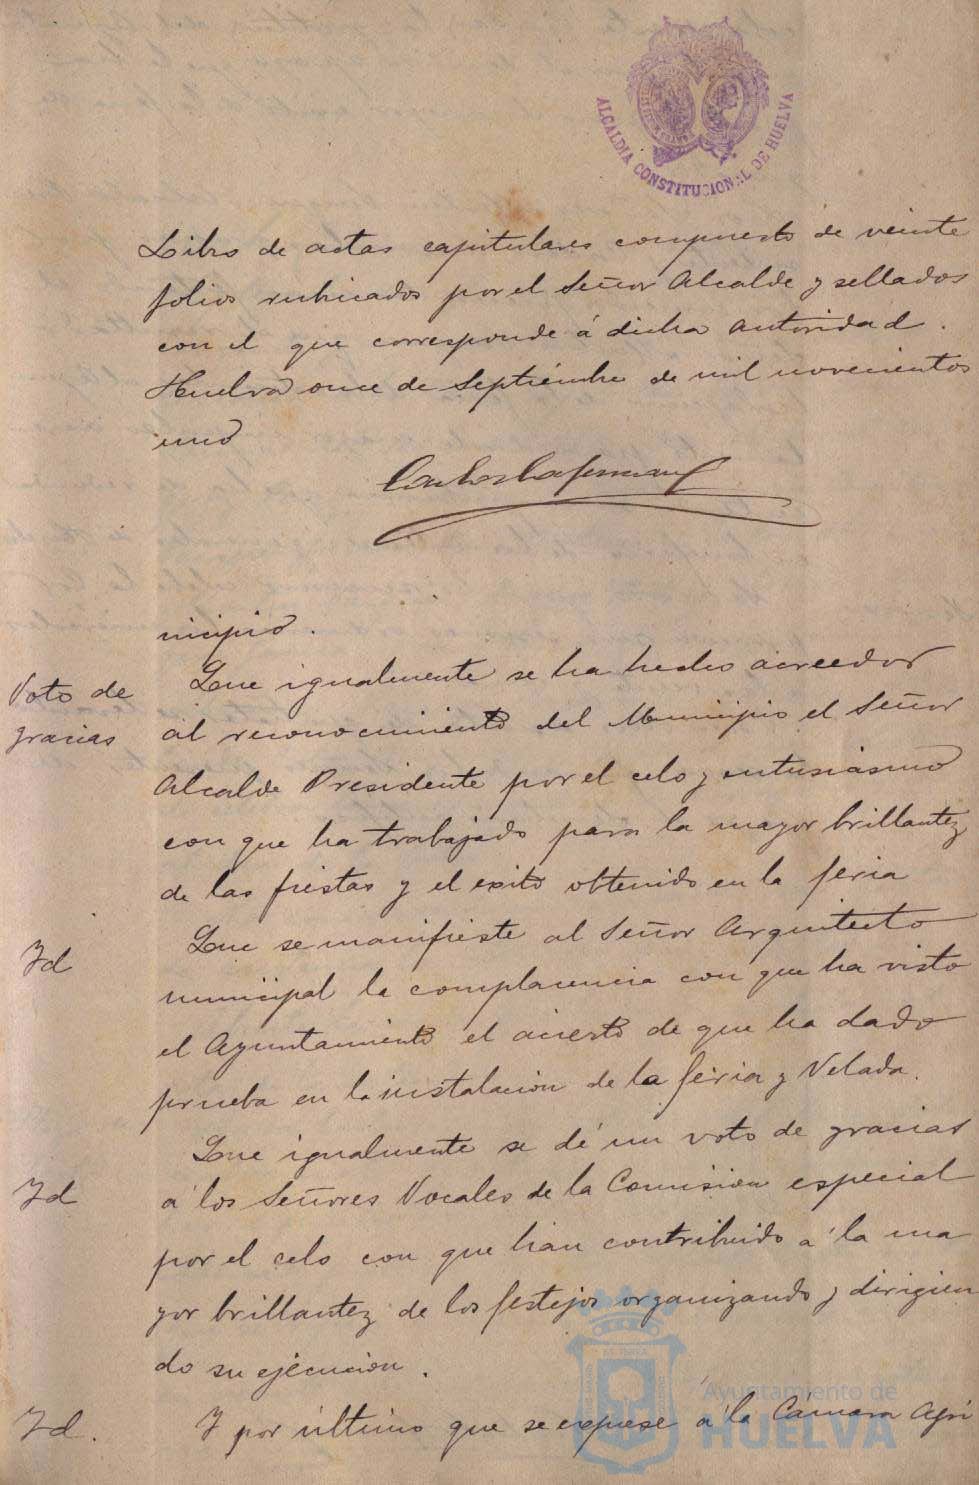 ALCALDIA CONSTITUCIONAL DE HUELVA
Libro de actas capitulares compuesto de veinte
folios rubricados por el Señor Alcalde y sellados
con el que corresponde á dicha autoridad.
Huelva once de Septiembre de mil novecientos
uno
nicipio.
Voto de
gracias
Que igualmente se ha hecho acreedor
al reconocimiento del Municipio el Señor
Alcalde Presidente por el celo y entusiasmo
con que ha trabajado para la mayor brillantez
de las fiestas y el exito obtenido en la feria
Yd
Que se manifieste al Señor Arquitecto
municipal la complacencia con que ha visto
el Ayuntamiento el acierto de que ha dado
prueba en la instalacion de la feria y Velada.
Yd
Que igualmente se dé un voto de gracias
á los Señores Vocales de la Comision especial
por el celo con que han contribuido á la ma
yor brillantez de los festejos organizando y dirigien
do su ejecucion.
Yd.
Y por último que se exprese á la Cámara Agri
Ayuntamiento de
HUELVA